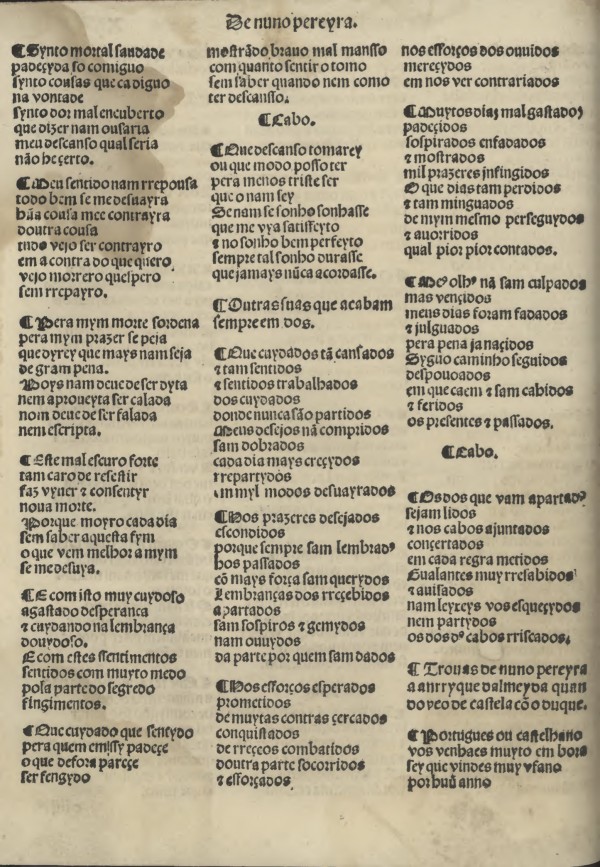 De nuno pereyra.
¶Synto mortal saudade
padeçyda so comiguo
synto cousas que ca diguo
na vontade
synto dor mal encuberto
que dizer nam ousaria
meu descanso qual seria
não he çerto.
¶Meu sentido nam rrepousa
todo bem se me desuayra
hũa cousa mee contrayra
doutra cousa
tudo vejo ser contrayro
em a contra do que quero
vejo morrero quespero
sem rrepayro.
¶Pera mym morte sordena
pera mym prazer se peja
que dyrey que mays nam seja
de gram pena.
Poys nam deue de ser dyta
nem aproueyta ser calada
nom deue de ser falada
nem escripta.
¶Este mal escuro forte
tam caro de resestir
faz vyuer ⁊ consentyr
noua morte.
Porque moyro cada dia
sem saber aquesta fym
o que vem melhor a mym
se me desuya.
¶E com isto muy cuydoso
agastado desperança
⁊ cuydando na lembrança
douydoso.
E com estes ssentimentos
sentidos com muyto medo
posa parte do segredo
fingimentos.
¶Que cuydado que senty do
pera quem em issy padeçe
o que de fora pareçe
ser fengydo
mostrãdo brauo mal mansso
com quanto sentir o tomo
sem saber quando nem como
ter descansso.
¶Cabo.
¶Que descanso tomarey
ou que modo posso ter
pera menos triste ser
que o nam sey
Se nam se sonho sonhasse
que me vya satisfeyto
⁊ no sonho bem perfeyto
sempre tal sonho durasse
que jamays nũca acordasse.
¶Outras suas que acabam
sempre em dos.
¶Que cuydados tã cansados
⁊ tam sentidos
⁊ sentidos trabalhados
dos cuydados
donde nunca são partidos
Meus desejos nã compridos
sam dobrados
cada dia mays creçydos
⁊ repartydos
em myl modos desuayrados
¶Nos prazeres desejados
escondidos
porque sempre sam lembrados
hos passados
cõ mays força sam querydos
Lembranças dos rreçebidos
apartados
sam sospiros ⁊ gemydos
nam ouuydos
da parte por quem sam dados
¶Nos efforços esperados
prometidos
de muytas contras çercados
conquistados
de rreçeos combatidos
doutra parte socorridos
⁊ efforçados
nos efforços dos ouuidos
mereçydos
em nos ver contrariados
¶Muytos dias mal gastados
padeçidos
sospirados enfadados
⁊ mostrados
mil prazeres infingidos
O que dias tam perdidos
⁊ tam minguados
de mym mesmo perseguydos
⁊ auorridos
qual pior pior contados.
¶Meᵒ olhᵒ nã sam culpados
mas vençidos
meus dias foram fadados
⁊ julguados
pera pena ja naçidos
Syguo caminho seguidos
despouoados
em que caem ⁊ sam cabidos
⁊ feridos
os presentes ⁊ passados.
¶Cabo.
¶Os dos que vam apartadᵒ
sejam lidos
⁊ nos cabos ajuntados
conçertados
em cada regra metidos
Gualantes muy rresabidos
⁊ auisados
nam leyxeys vos esqueçydos
nem partydos
os dos dᵒ cabos rriscados.
¶Trouas de nuno pereyra
a anrryque dalmeyda quan
do veo de castela cõ o duque.
¶Portugues ou castelhano
vos venhaes muyto em bora
sey que vindes muy vfano
por huũ anno